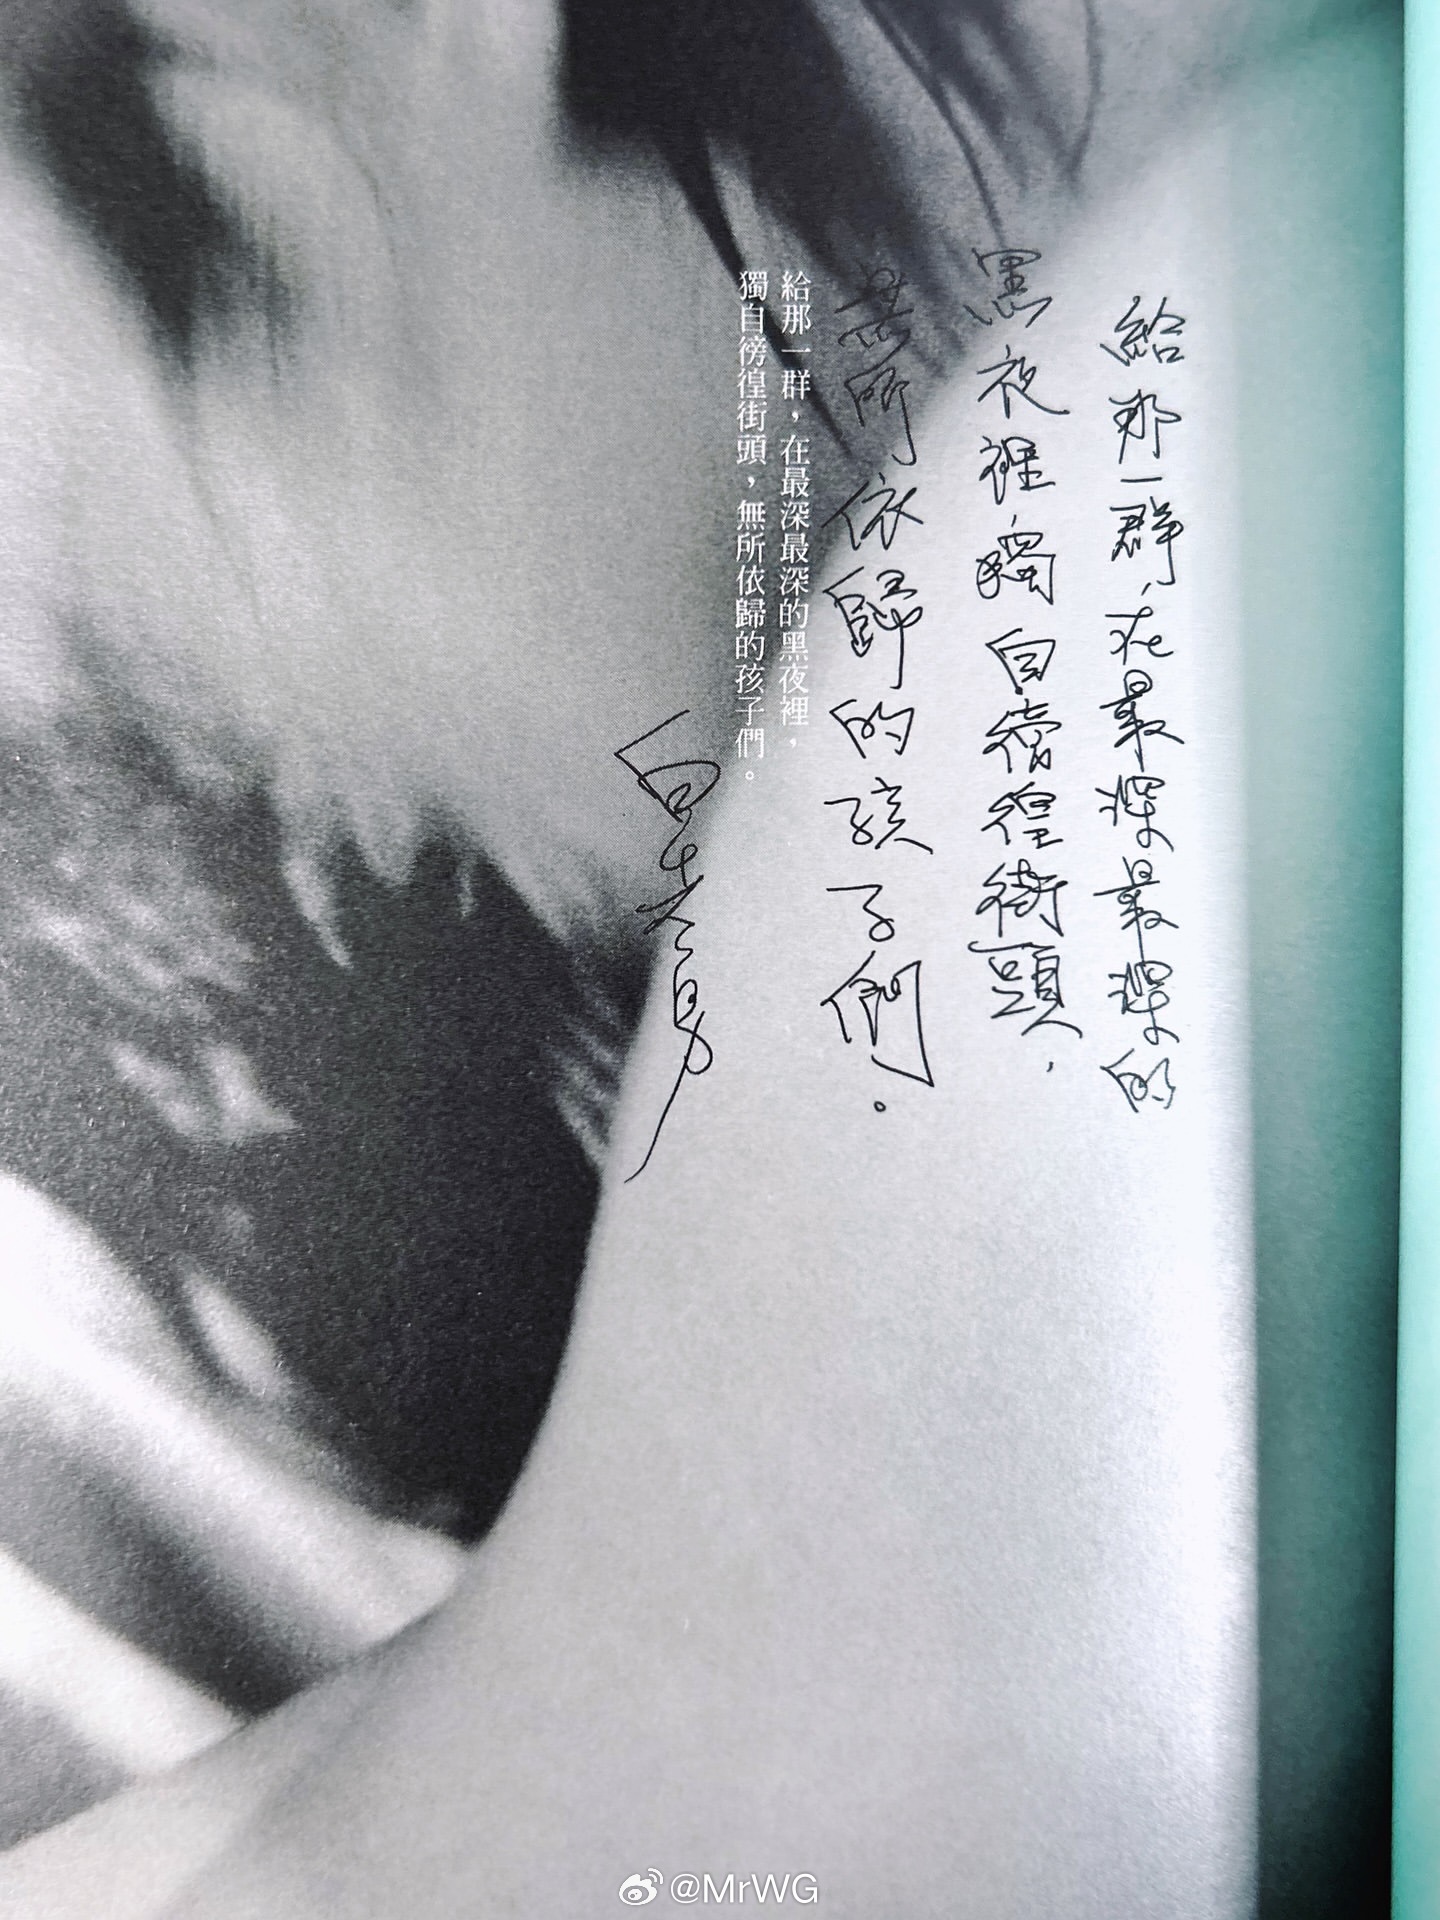 給那一群，在最深最深的
黑夜裡獨自徬徨街頭，
無所依歸的孩子們。
白先勇
給那一群，在最深最深的黑夜裡，
獨自徬徨街頭，無所依歸的孩子們。
@MrWG